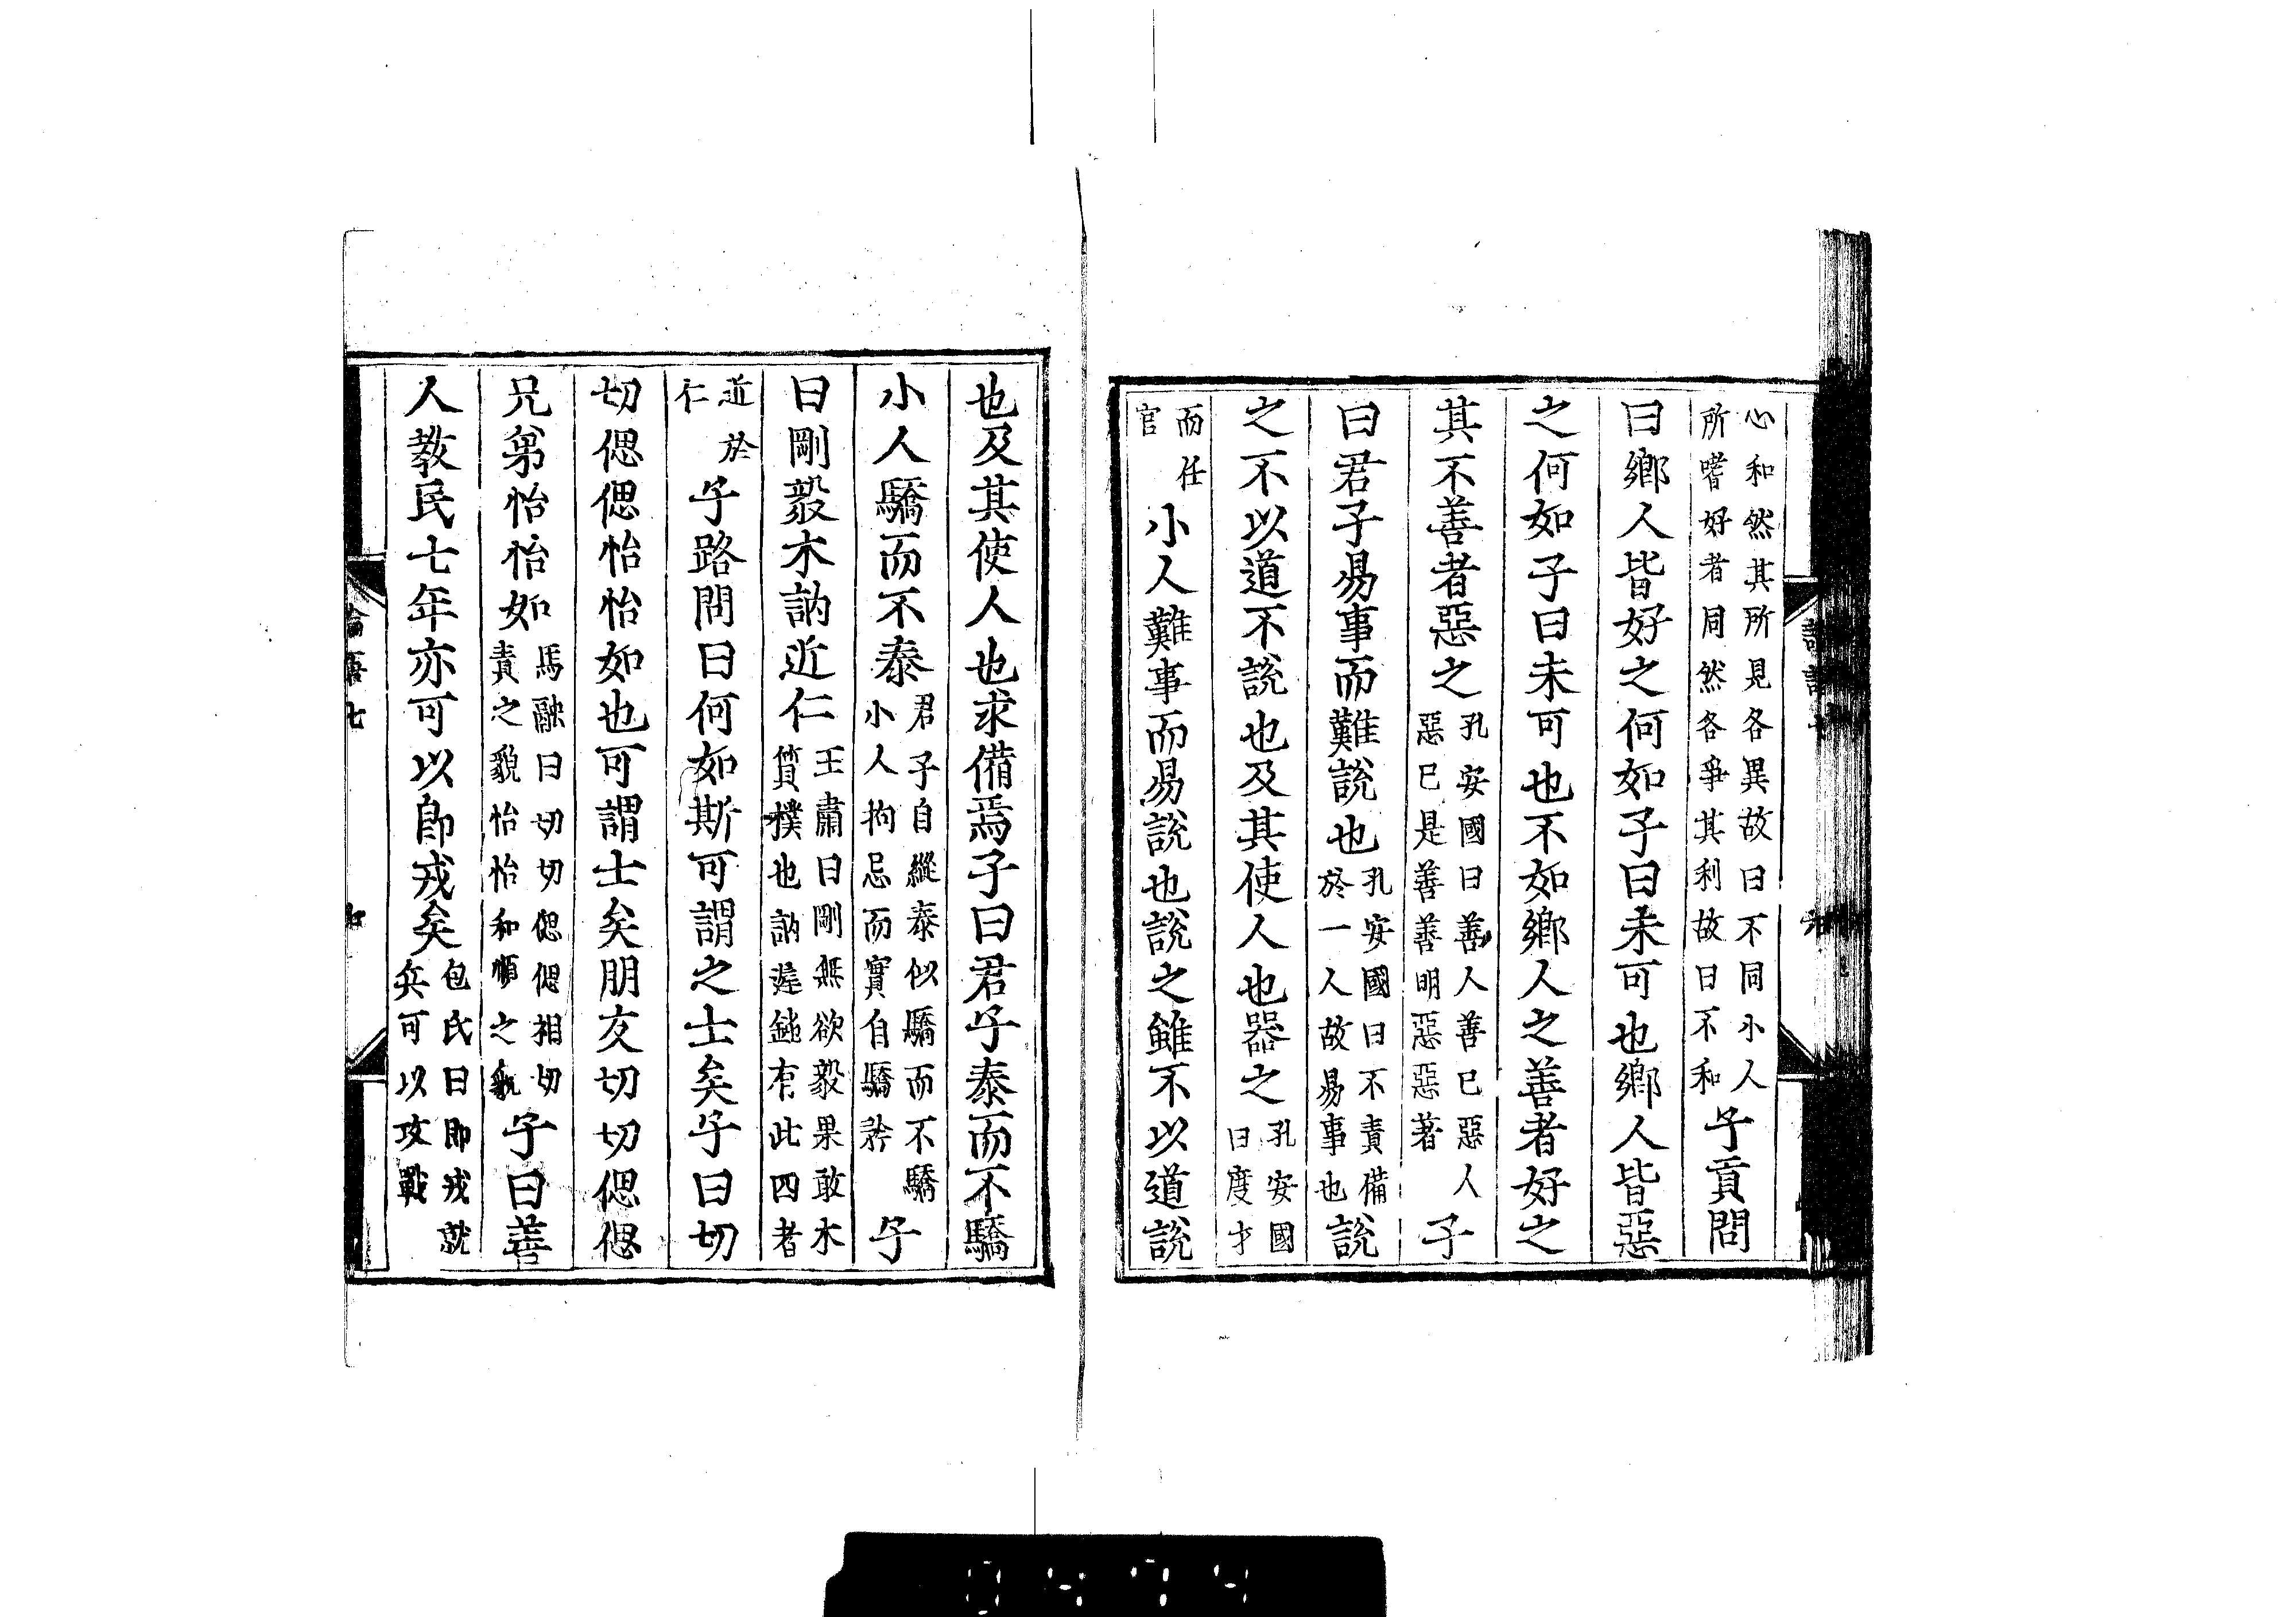 心和然其所見各異故曰不同小人
所嗜好者同然各爭其利故曰不和
子貢問
曰鄉人皆好之何如子曰未可也鄉人皆惡
之何如子曰未可也不如鄉人之善者好之
其不善者惡之
孔安國曰善人善已惡人
惡已是善善明惡惡著
子
曰君子易事而難說也
孔安國曰不責備
於一人故易事也
說
之不以道不說也及其使人也器之
孔安國
曰度才
而任
官
小人難事而易說也說之雖不以道說
也及其使人也求備焉子曰君子泰而不驕
小人驕而不泰
君子自縱泰似驕而不驕
小人拘忌而實自驕矜
子
曰剛毅木訥近仁
王肅曰剛無欲毅果敢木
質樸也訥遲鈍有此四者
近於
仁
子路問曰何如斯可謂之士矣子曰切
切偲偲怡怡如也可謂士矣朋友切切偲偲
兄弟怡怡如
馬融曰切切偲偲相切
責之貌怡怡和順之貌
子曰善
人教民七年亦可以即戎矣
包氏曰即戎就
兵可以攻戰
論語七